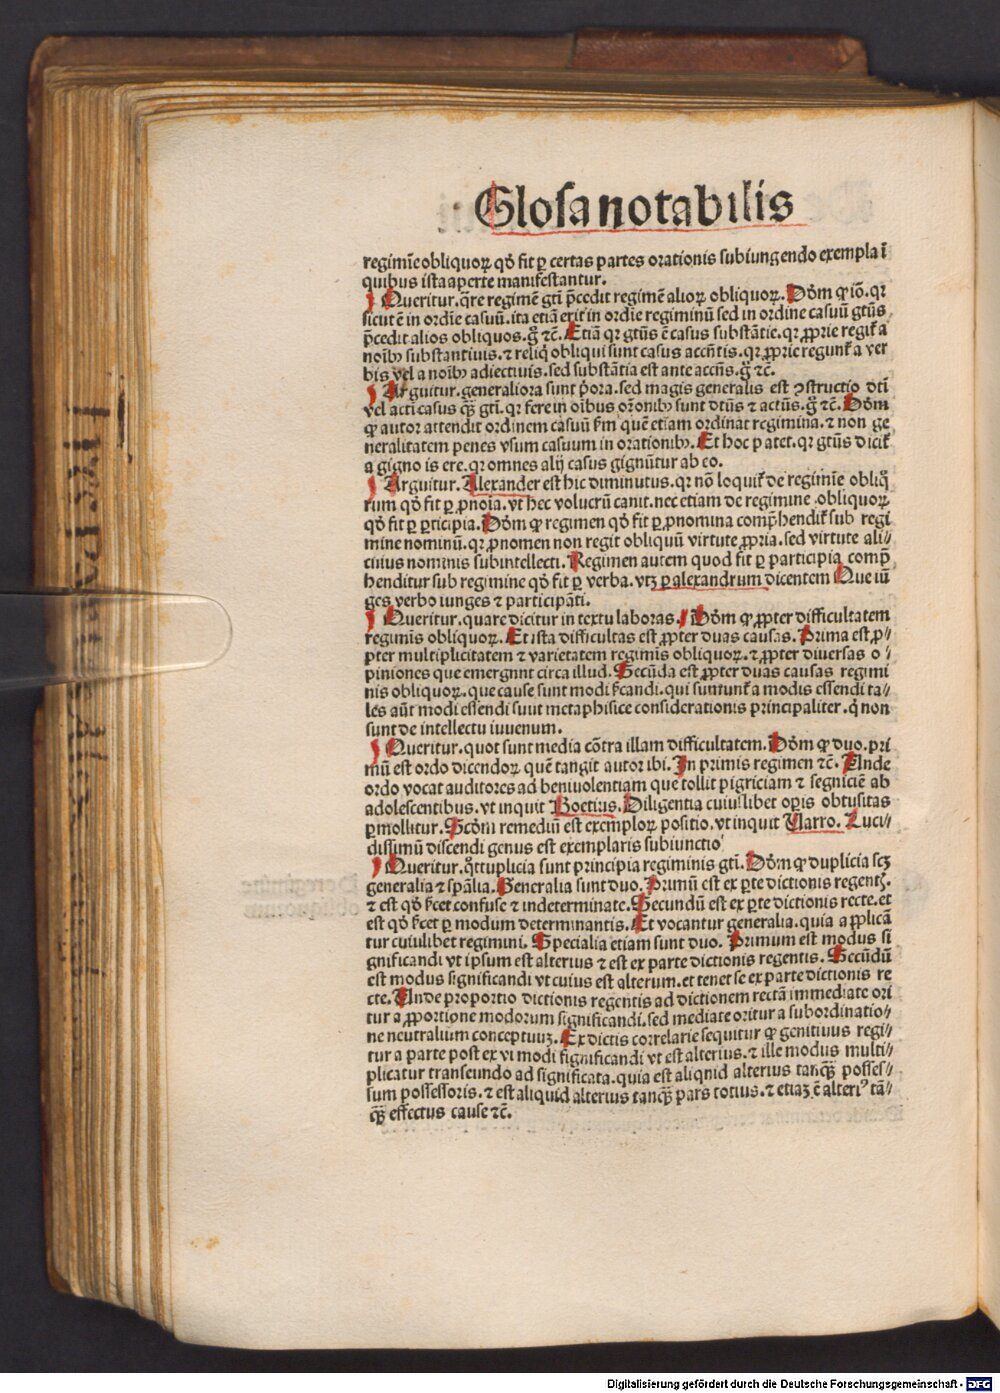 Glosa notabilis
regimīe obliquoꝝ qḋ fit ꝑ certas partes orationis subiungendo exempla ī
quibus ista aperte manifestantur.
Queritur. q̄re regimē gtī p̄cedit regimē alioꝝ obliquoꝝ. Dōm ꝙ iō. qr
sicut ē in ordīe casuū. ita etiā erit in ordīe regiminū sed in ordine casuū gtūs
p̄cedit alios obliquos. gͦ ⁊c̄. Etiā qr gtūs ē casus substātie. qr ꝓprie regit᷑ a
noībꝫ substantiuis. ⁊ reliq̇ obliqui sunt casus accn̄tis. qr ꝓprie regunt᷑ a ver
bis vel a noībꝫ adiectiuis. sed substātia est ante accn̄s. gͦ ⁊c̄.
Arguitur. generaliora sunt p̄ora. sed magis generalis est ꝯstructio dtī
vel acti casus qꝫ̄ gtī. qr fere in oībus or̄onibꝫ sunt dtūs ⁊ actūs. gͦ ⁊c̄. Dōm
ꝙ autor attendit ordinem casuū ẜm quē etiam ordinat regimina. ⁊ non ge
neralitatem penes vsum casuum in orationibꝫ. Et hoc patet. qr gtūs dicit᷑
a gigno is ere. qr omnes alij casus gignūtur ab eo.
Arguitur. Alexander est hic diminutus. qr nō loquit᷑ de regimīe obliq̇
rum qḋ fit ꝑ ꝓnoīa. vt hec volucrū canit. nec etiam de regimine obliquoꝝ
qḋ fit ꝑ ꝑticipia. Dōm ꝙ regimen qḋ fit ꝑ ꝓnomina comp̄hendit᷑ sub regi
mine nominū. qr ꝓnomen non regit obliquū virtute ꝓpria. sed virtute ali⸗
cuius nominis subintellecti. Regimen autem quod fit ꝑ participia comp̄
henditur sub regimine qḋ fit ꝑ verba. vtꝫ ꝑ alexandrum dicentem Que iū
ges verbo iunges ⁊ participāti.
Queritur. quare dicitur in textu laboras. Dōm ꝙ ꝓpter difficultatem
regimīs obliquoꝝ. Et ista difficultas est ꝓpter duas causas. Prima est ꝓ⸗
pter multiplicitatem ⁊ varietatem regimīs obliquoꝝ. ⁊ ꝓpter diuersas o⸗
piniones que emergunt circa illud. Secūda est ꝓpter duas causas regimi
nis obliquoꝝ. que cause sunt modi ẜcandi. qui sumunt᷑ a modis essendi ta⸗
les aūt modi essendi sunt metaphisice considerationis principaliter. q̇ non
sunt de intellectu iuuenum.
Queritur. quot sunt media cōtra illam difficultatem. Dōm ꝙ duo. pri
mū est ordo dicendoꝝ quē tangit autor ibi. In primis regimen ⁊c̄. Unde
ordo vocat auditores ad beniuolentiam que tollit pigriciam ⁊ segniciē ab
adolescentibus. vt inquit Boetius. Diligentia cuiuslibet oꝑis obtusitas
ꝑmollitur. Scḋm remediū est exemploꝝ positio. vt inquit Varro. Luci⸗
dissimū discendi genus est exemplaris subiunctio
Queritur. q̊ttuplicia sunt principia regiminis gtī. Dōm ꝙ duplicia scꝫ
generalia ⁊ sp̄alia. Generalia sunt duo. Primū est ex ꝑte dictionis regentꝭ.
⁊ est qḋ ẜcet confuse ⁊ indeterminate. Secundū est ex ꝑte dictionis recte. et
est qḋ ẜcet ꝑ modum determinantis. Et vocantur generalia. quia applicā
tur cuiuslibet regimini. Specialia etiam sunt duo. Primum est modus si
gnificandi vt ipsum est alterius ⁊ est ex parte dictionis regentis. Secūdū
est modus significandi vt cuius est alterum. et tenet se ex parte dictionis re
cte. Unde proportio dictionis regentis ad dictionem rectā immediate ori
tur a ꝓportione modorum significandi. sed mediate oritur a subordinatio⸗
ne neutralium conceptuuꝫ. Ex dictis correlarie sequitur ꝙ genitiuus regi⸗
tur a parte post ex vi modi significandi vt est alterius. ⁊ ille modus multi⸗
plicatur transeundo ad significata. quia est aliquid alterius tanqꝫ̄ posses⸗
sum possessoris. ⁊ est aliquid alterius tanqꝫ̄ pars totius. ⁊ etiaꝫ ē alteriꝰ tā⸗
qꝫ̄ effectus cause ⁊c̄.
Digitalisierung gefördert durch die Deutsche Forschungsgemeinschaft - DFG